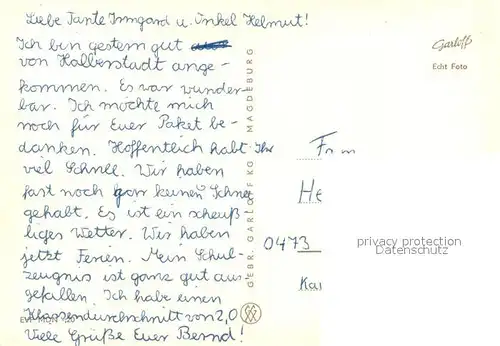 Liebe Tante Irmgard u. Onkel Helmut!
Ich bin gestern gut
von Halberstadt ange-
kommen. Es war wunder-
bar. Ich möchte mich
noch für Euer Paket be-
danken. Hoffentlich habt Ihr
viel Schnee. Wir haben
fast noch gar keinen Schnee
gehabt. Es ist ein scheuß
liges Wetter. Wir haben
jetzt Ferien. Mein Schul-
zeugnis ist ganz gut aus
gefallen. Ich habe einen
Klassendurchschnitt von 2,0
Viele Grüße Euer Bernd!
GEBR. GARLOFF KG MAGDEBURG
Garloff
Echt Foto
He
0473
Kar
privacy protection
Datenschutz